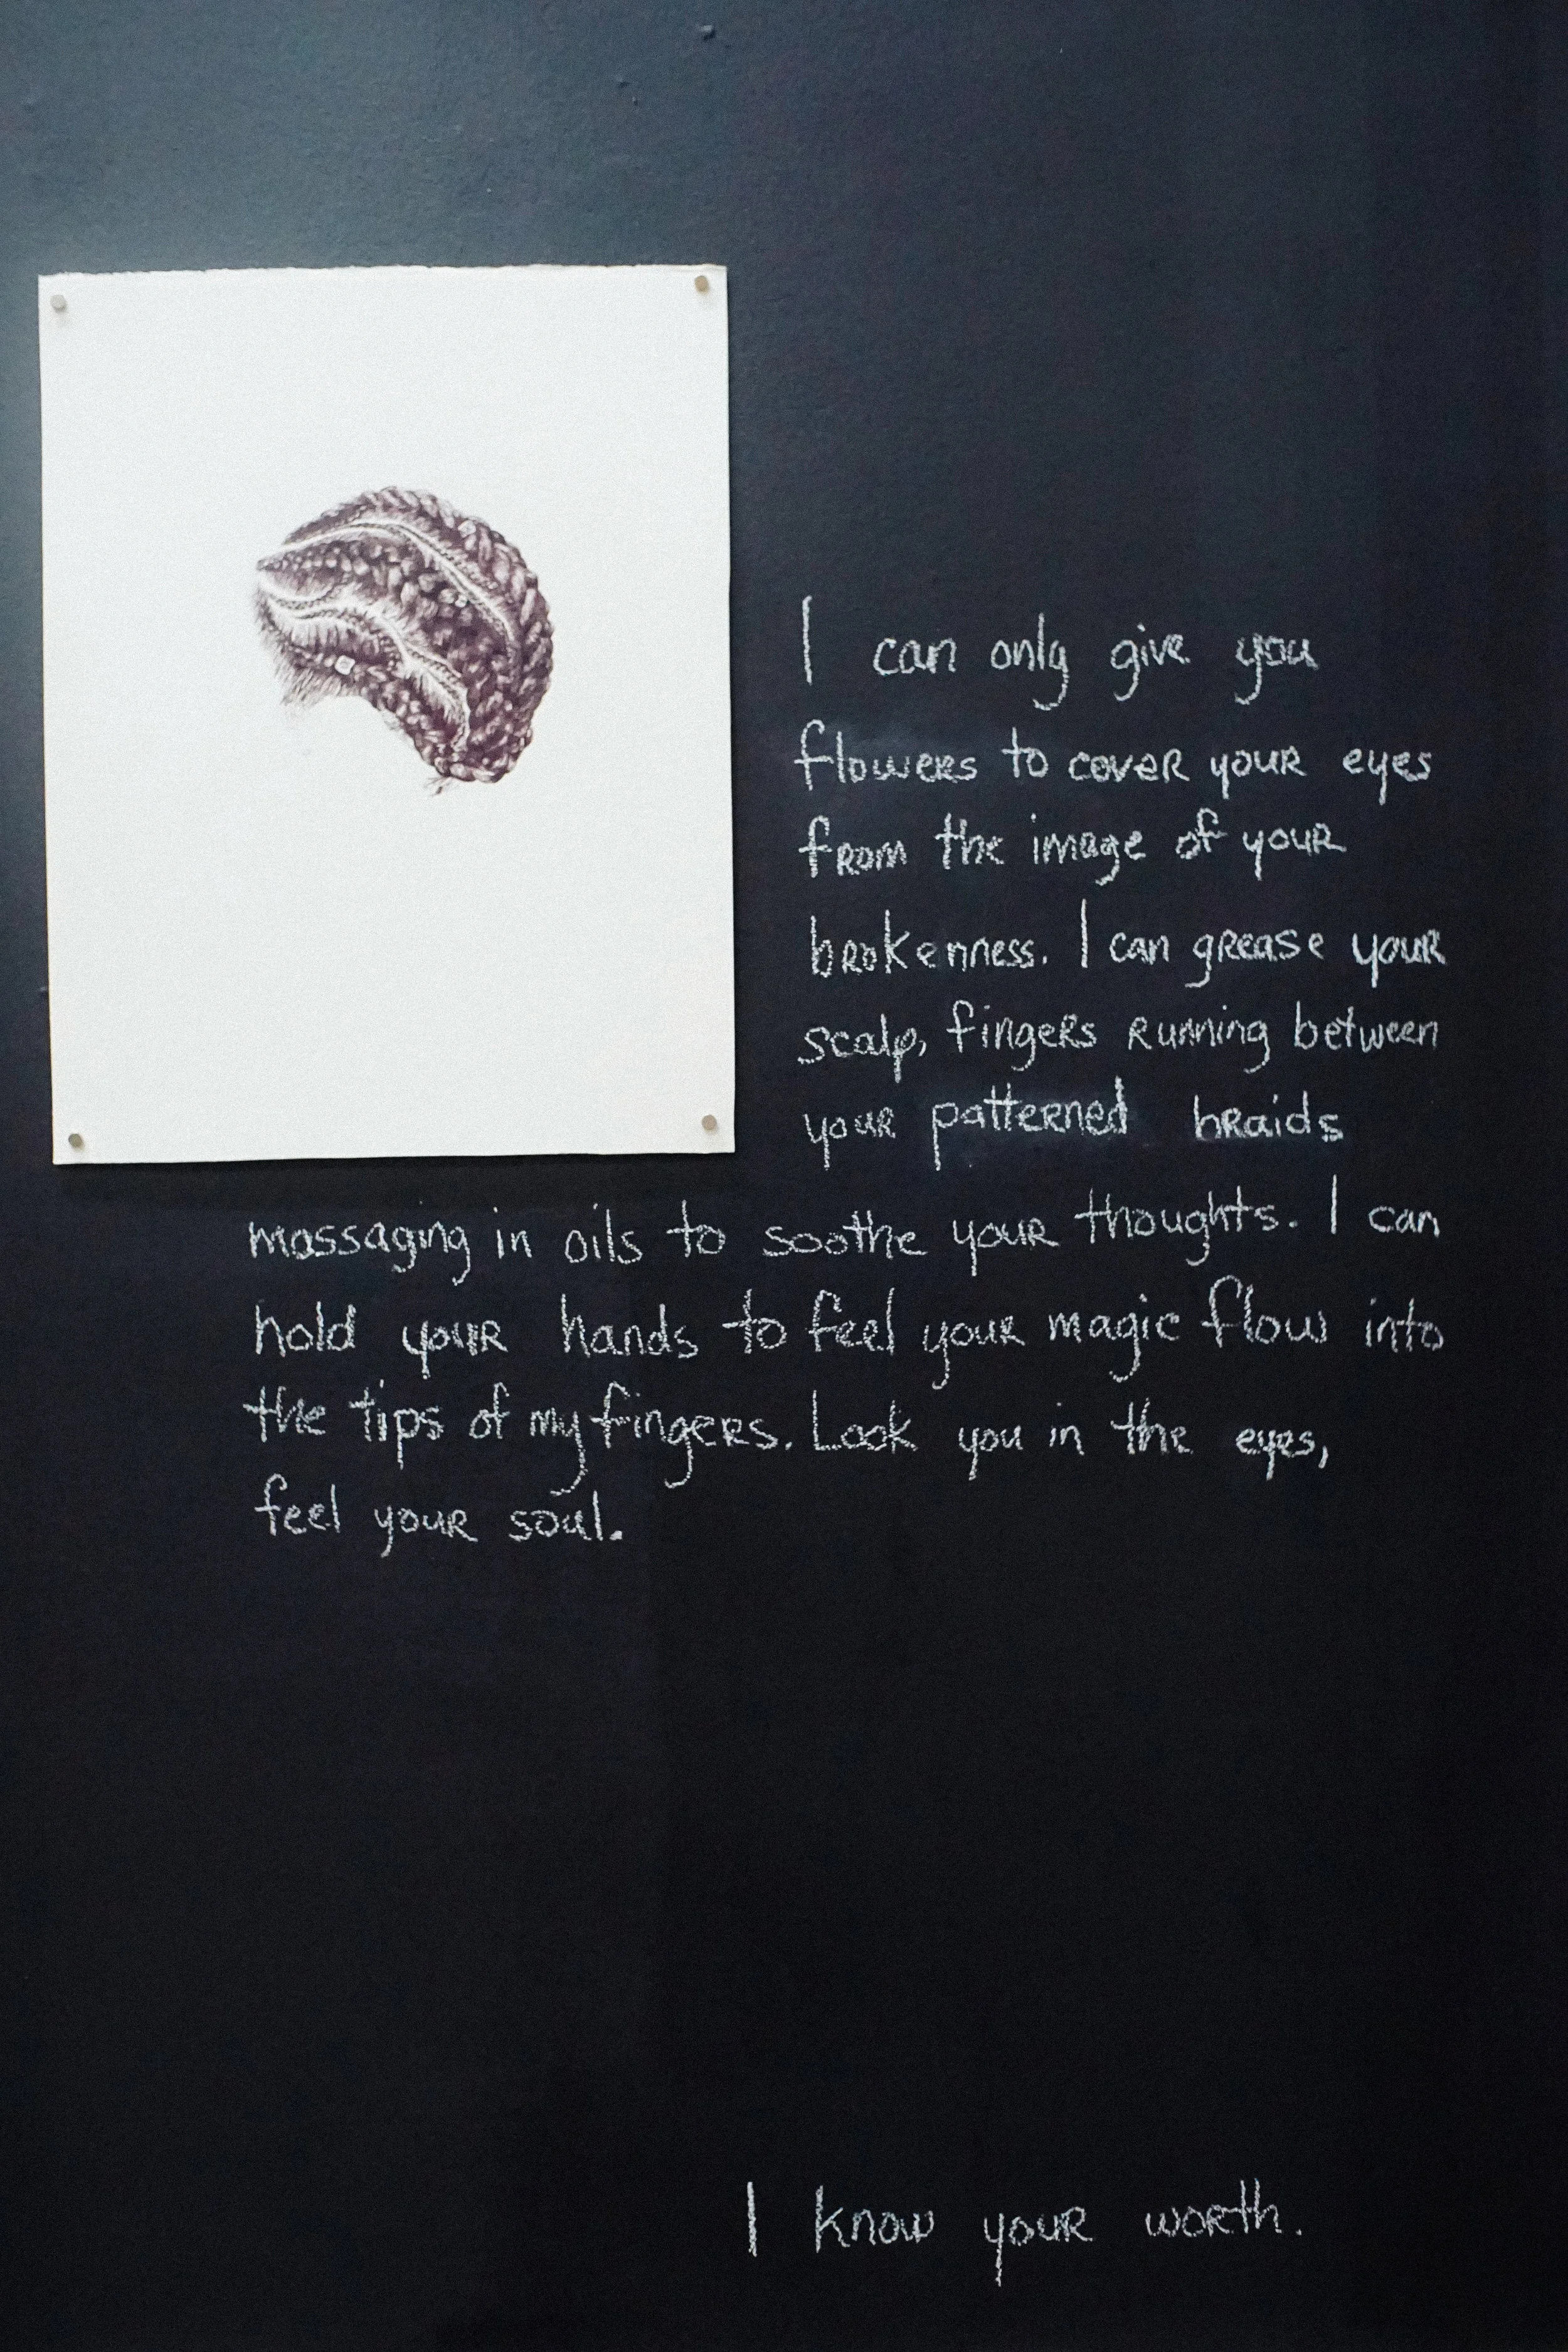 I can only give you
flowers to cover your eyes
from the image of your
brokenness. I can grease your
scalp, fingers running between
your patterned braids
massaging in oils to soothe your thoughts. I can
hold your hands to feel your magic flow into
the tips of my fingers. Look you in the eyes,
feel your soul.
I know your worth.